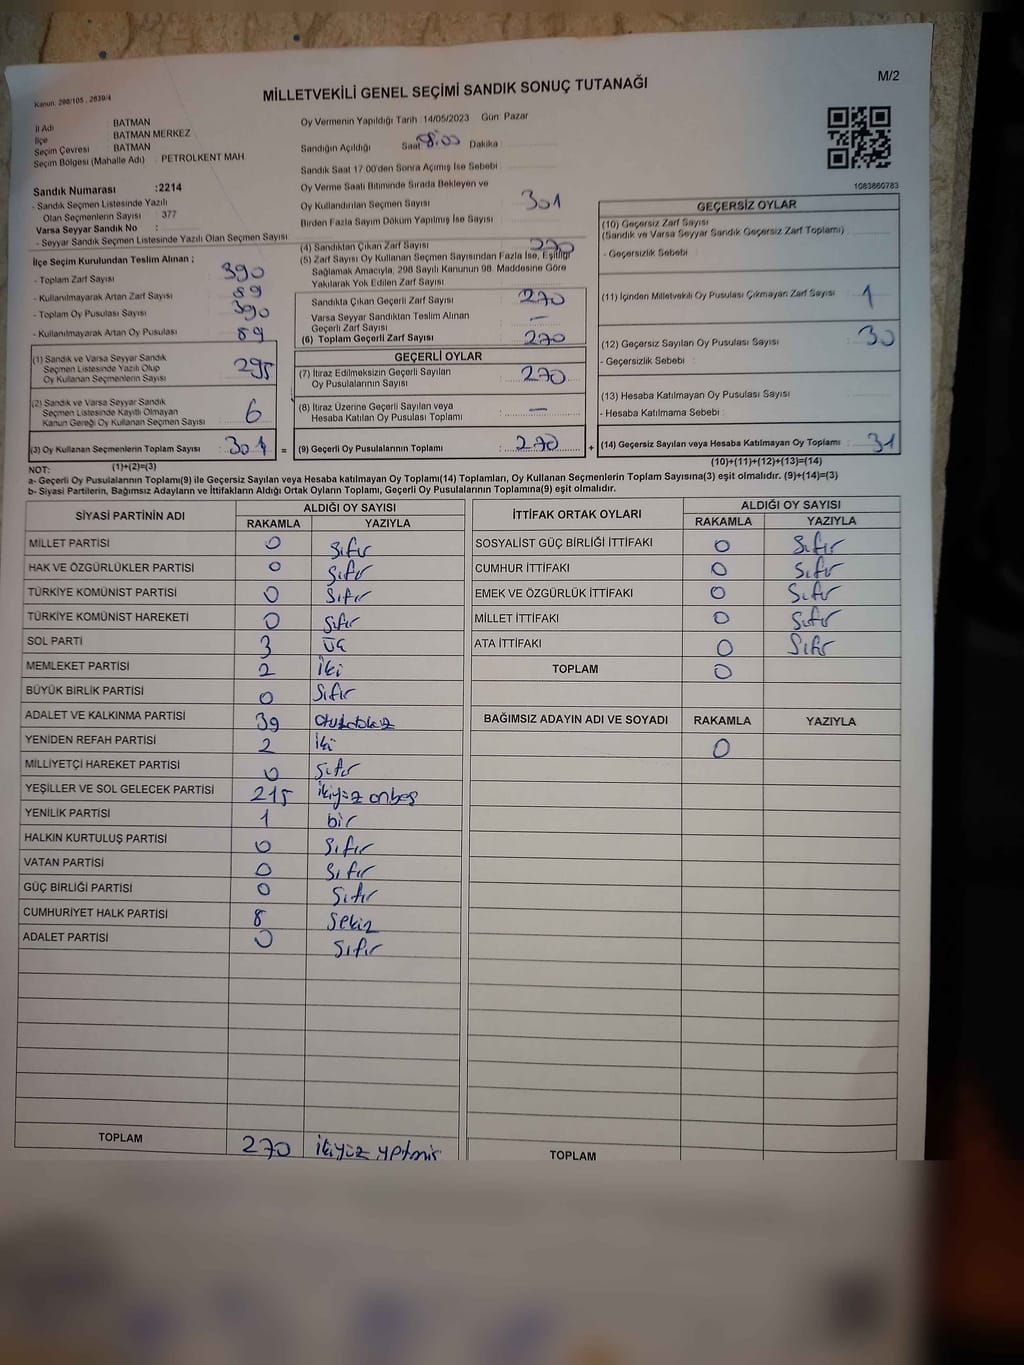 M/2
Kanun: 298/105 , 2839/4
MİLLETVEKİLİ GENEL SEÇİMİ SANDIK SONUÇ TUTANAĞI
İl Adı : BATMAN
İlçe : BATMAN MERKEZ
Seçim Çevresi : BATMAN
Seçim Bölgesi (Mahalle Adı) : PETROLKENT MAH
Sandık Numarası :2214
- Sandık Seçmen Listesinde Yazılı
Olan Seçmenlerin Sayısı : 377
Varsa Seyyar Sandık No :
- Seyyar Sandık Seçmen Listesinde Yazılı Olan Seçmen Sayısı
İlçe Seçim Kurulundan Teslim Alınan ;
- Toplam Zarf Sayısı 390
- Kullanılmayarak Artan Zarf Sayısı 89
- Toplam Oy Pusulası Sayısı 390
- Kullanılmayarak Artan Oy Pusulası 89
(1) Sandık ve Varsa Seyyar Sandık
Seçmen Listesinde Yazılı Olup
Oy Kullanan Seçmenlerin Sayısı 295
(2) Sandık ve Varsa Seyyar Sandık
Seçmen Listesinde Kayıtlı Olmayan
Kanun Gereği Oy Kullanan Seçmen Sayısı : 6
(3) Oy Kullanan Seçmenlerin Toplam Sayısı : 301 =
Oy Vermenin Yapıldığı Tarih : 14/05/2023 Gün: Pazar
Sandığın Açıldığı Saat 8:00 Dakika
Sandık Saat 17:00'den Sonra Açımış İse Sebebi :
Oy Verme Saati Bitiminde Sırada Bekleyen ve
Oy Kullandırılan Seçmen Sayısı : 301
Birden Fazla Sayım Döküm Yapılmış İse Sayısı :
(4) Sandıktan Çıkan Zarf Sayısı : 270
(5) Zarf Sayısı Oy Kullanan Seçmen Sayısından Fazla İse, Eşitliği
Sağlamak Amacıyla, 298 Sayılı Kanunun 98. Maddesine Göre
Yakılarak Yok Edilen Zarf Sayısı :
Sandıkta Çıkan Geçerli Zarf Sayısı : 270
Varsa Seyyar Sandıktan Teslim Alınan
Geçerli Zarf Sayısı : —
(6) Toplam Geçerli Zarf Sayısı : 270
GEÇERLİ OYLAR
(7) İtiraz Edilmeksizin Geçerli Sayılan
Oy Pusulalarının Sayısı : 270
(8) İtiraz Üzerine Geçerli Sayılan veya
Hesaba Katılan Oy Pusulası Toplamı : —
(9) Geçerli Oy Pusulalarının Toplamı : 270 +
1083860783
GEÇERSİZ OYLAR
(10) Geçersiz Zarf Sayısı
(Sandık ve Varsa Seyyar Sandık Geçersiz Zarf Toplamı) :
- Geçersizlik Sebebi :
(11) İçinden Milletvekili Oy Pusulası Çıkmayan Zarf Sayısı : 1
(12) Geçersiz Sayılan Oy Pusulası Sayısı : 30
- Geçersizlik Sebebi :
(13) Hesaba Katılmayan Oy Pusulası Sayısı :
- Hesaba Katılmama Sebebi :
(14) Geçersiz Sayılan veya Hesaba Katılmayan Oy Toplamı : 31
NOT: (1)+(2)=(3) (10)+(11)+(12)+(13)=(14)
a- Geçerli Oy Pusulalarının Toplamı(9) ile Geçersiz Sayılan veya Hesaba katılmayan Oy Toplamı(14) Toplamları, Oy Kullanan Seçmenlerin Toplam Sayısına(3) eşit olmalıdır. (9)+(14)=(3)
b- Siyasi Partilerin, Bağımsız Adayların ve İttifakların Aldığı Ortak Oyların Toplamı, Geçerli Oy Pusulalarının Toplamına(9) eşit olmalıdır.
SİYASİ PARTİNİN ADI ALDIĞI OY SAYISI
RAKAMLA YAZIYLA
MİLLET PARTİSİ 0 Sıfır
HAK VE ÖZGÜRLÜKLER PARTİSİ 0 Sıfır
TÜRKİYE KOMÜNİST PARTİSİ 0 Sıfır
TÜRKİYE KOMÜNİST HAREKETİ 0 Sıfır
SOL PARTİ 3 üç
MEMLEKET PARTİSİ 2 İki
BÜYÜK BİRLİK PARTİSİ 0 Sıfır
ADALET VE KALKINMA PARTİSİ 39 otuzdokuz
YENİDEN REFAH PARTİSİ 2 İki
MİLLİYETÇİ HAREKET PARTİSİ 0 Sıfır
YEŞİLLER VE SOL GELECEK PARTİSİ 215 ikiyüz onbeş
YENİLİK PARTİSİ 1 bir
HALKIN KURTULUŞ PARTİSİ 0 Sıfır
VATAN PARTİSİ 0 Sıfır
GÜÇ BİRLİĞİ PARTİSİ 0 Sıfır
CUMHURİYET HALK PARTİSİ 8 Sekiz
ADALET PARTİSİ 0 Sıfır
TOPLAM 270 ikiyüz yetmiş
İTTİFAK ORTAK OYLARI ALDIĞI OY SAYISI
RAKAMLA YAZIYLA
SOSYALİST GÜÇ BİRLİĞİ İTTİFAKI 0 Sıfır
CUMHUR İTTİFAKI 0 Sıfır
EMEK VE ÖZGÜRLÜK İTTİFAKI 0 Sıfır
MİLLET İTTİFAKI 0 Sıfır
ATA İTTİFAKI 0 Sıfır
TOPLAM 0
BAĞIMSIZ ADAYIN ADI VE SOYADI RAKAMLA YAZIYLA
0
TOPLAM